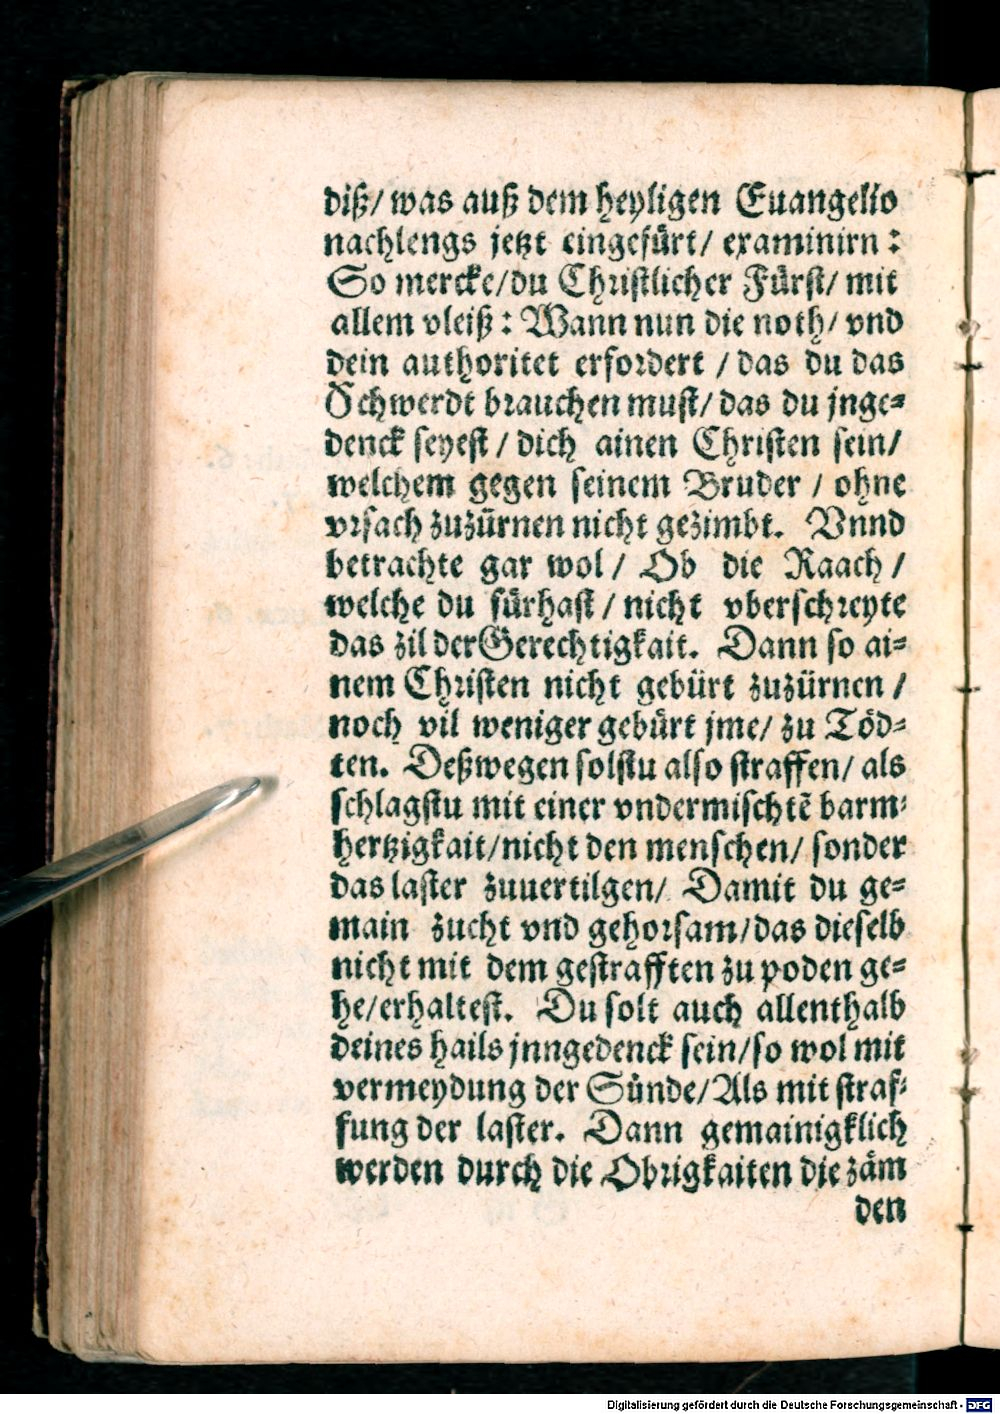 diß/ was auß dem heyligen Euangelio
nachlengs jetzt eingefürt/ examinirn:
So mercke/du Christlicher Fürst/ mit
allem vleiß: Wann nun die noth/ vnd
dein authoritet erfordert / das du das
Schwerdt brauchen must/ das du jnge=
denck seyest / dich ainen Christen sein/
welchem gegen seinem Bruder / ohne
vrsach zuzürnen nicht gezimbt. Vnnd
betrachte gar wol / Ob die Raach /
welche du fürhast / nicht vberschreyte
das zil der Gerechtigkait. Dann so ai=
nem Christen nicht gebürt zuzürnen /
noch vil weniger gebürt jme/ zu Töd=
ten. Deßwegen solstu also straffen/ als
schlagstu mit einer vndermischtē barm=
hertzigkait/nicht den menschen/ sonder
das laster zuuertilgen/ Damit du ge=
main zucht vnd gehorsam/das dieselb
nicht mit dem gestrafften zu poden ge=
he/erhaltest. Du solt auch allenthalb
deines hails jnngedenck sein/so wol mit
vermeydung der Sünde/Als mit straf=
fung der laster. Dann gemainigklich
werden durch die Obrigkaiten die zäm
den
Digitalisierung gefördert durch die Deutsche Forschungsgemeinschaft - DFG